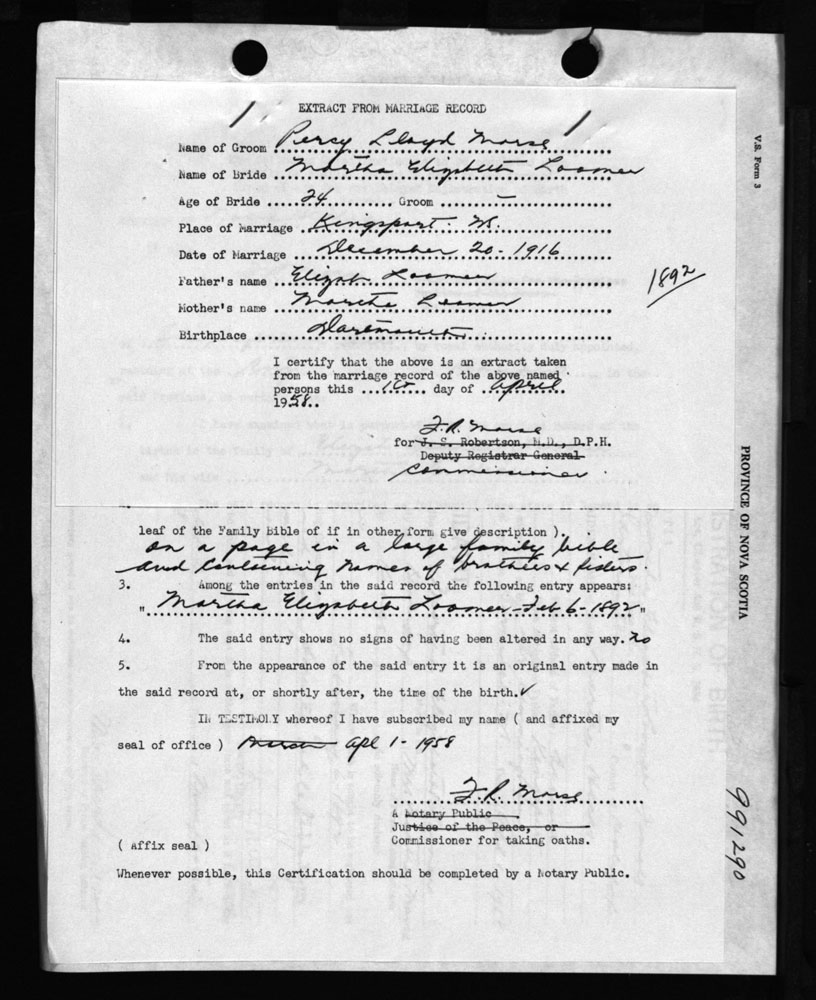 EXTRACT FROM MARRIAGE RECORD
Name of Groom Percy Lloyd Morse
Name of Bride Martha Elizabeth Loomer
Age of Bride 24 Groom -
Place of Marriage Kingsport
Date of Marriage December 20 - 1916
Father's name Loomer
1892
Mother's name Martha Loomer
Birthplace
I certify that the above is an extract taken
from the marriage record of the above named
persons this 1st day of April
1958.
F. R. Morse
for J. S. Robertson, M.D., D.P.H.
Deputy Registrar General
Commissioner.
leaf of the Family Bible of if in other form give description ).
on a page in a large family bible
and containing names of brothers & sisters.
3. Among the entries in the said record the following entry appears:
" Martha Elizabeth Loomer - Feb 6 - 1892 "
4. The said entry shows no signs of having been altered in any way. no
5. From the appearance of the said entry it is an original entry made in
the said record at, or shortly after, the time of the birth. ✓
IN TESTIMONY whereof I have subscribed my name ( and affixed my
seal of office ) Apl 1 - 1958
F. R. Morse
A Notary Public
Justice of the Peace, or
Commissioner for taking oaths.
( Affix seal )
Whenever possible, this Certification should be completed by a Notary Public.
V.S. Form 3
PROVINCE OF NOVA SCOTIA
991290